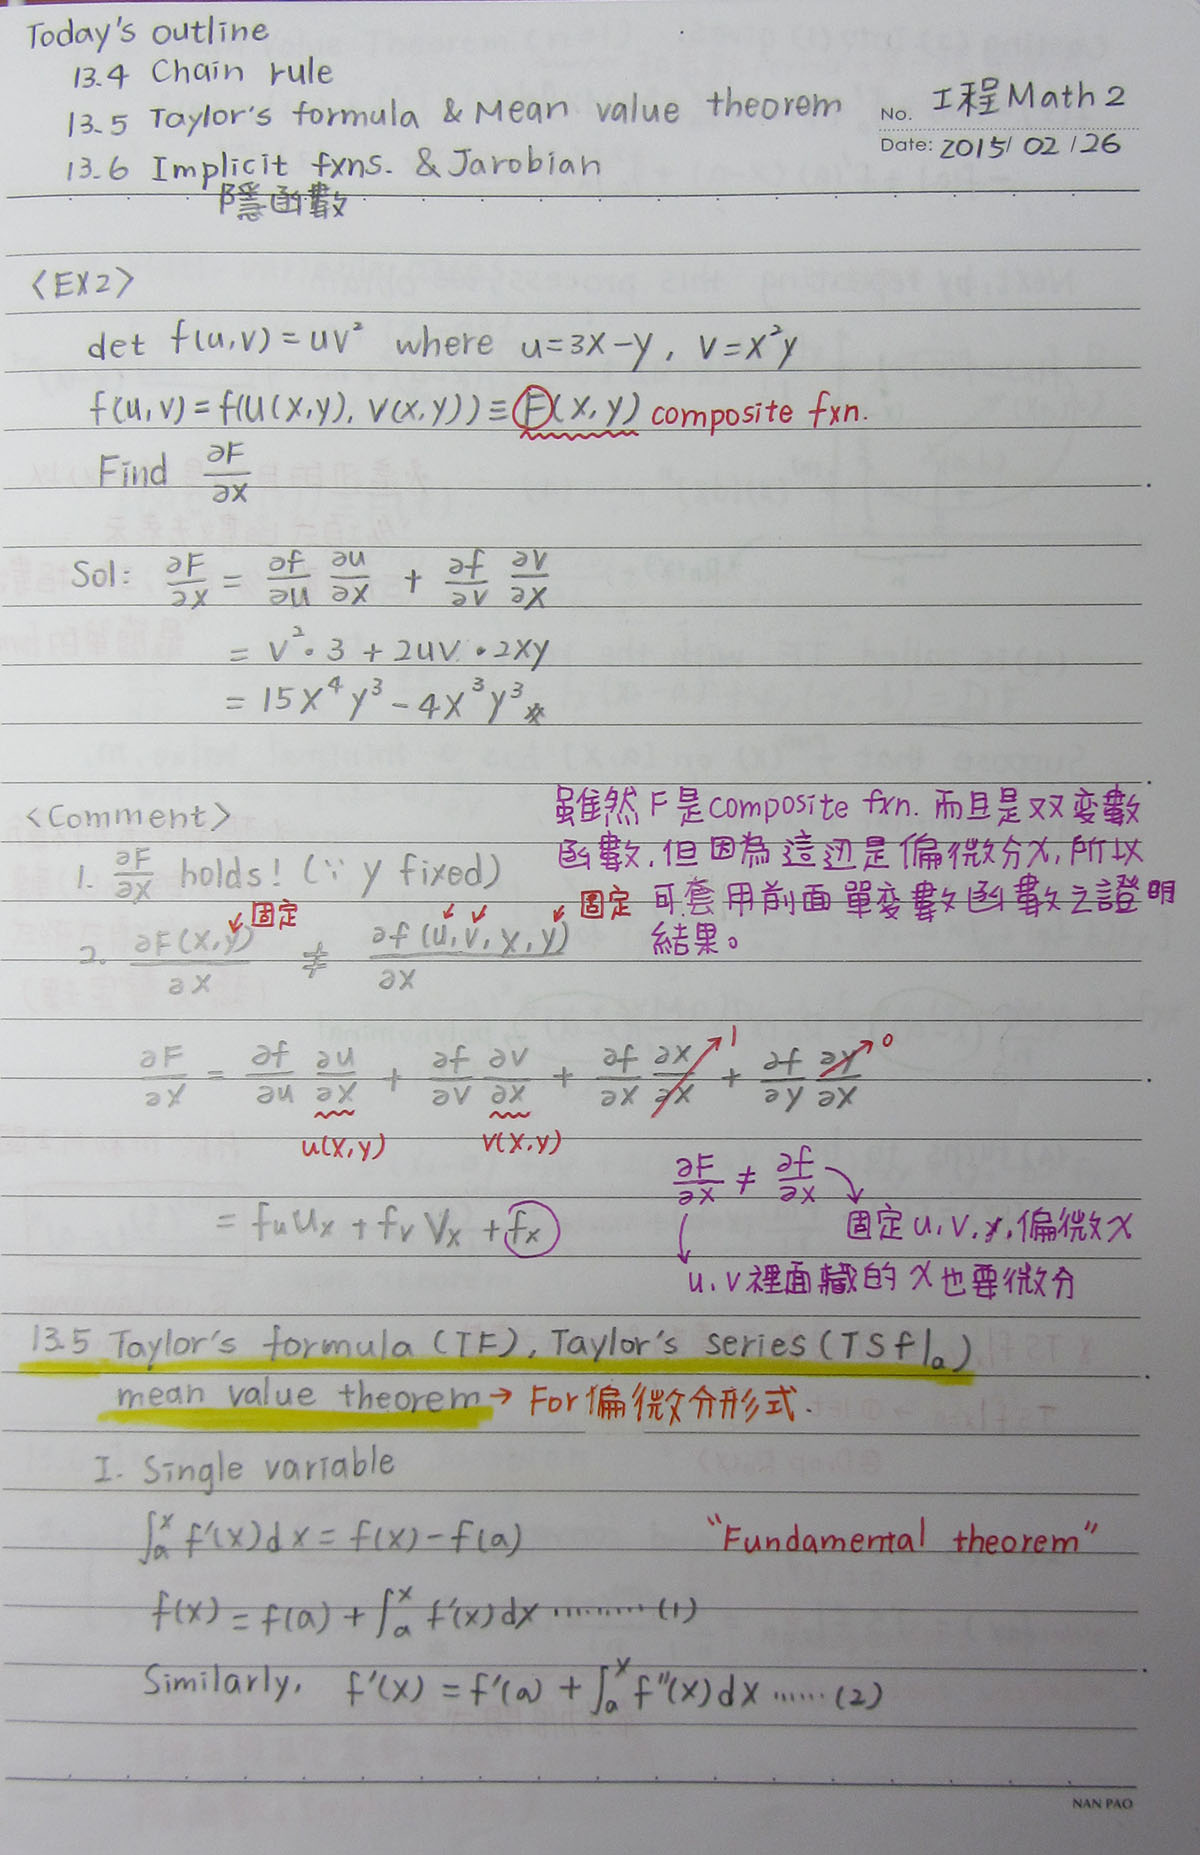 Today's outline
13.4 Chain rule
13.5 Taylor's formula & Mean value theorem
No. 工程Math 2
Date: 2015/ 02 /26
13.6 Implicit fxns. & Jarobian
隱函數
<EX2>
det f(u,v) = uv² where u=3x-y, v=x²y
f(u,v) = f(u(x,y), v(x,y)) ≡ F(x,y) composite fxn.
Find ∂F/∂x
Sol: ∂F/∂x = ∂f/∂u ∂u/∂x + ∂f/∂v ∂v/∂x
= v²·3 + 2uv·2xy
= 15x⁴y³ - 4x³y³ *
<Comment>
1. ∂F/∂x holds! (∵ y fixed)
雖然F是composite fxn. 而且是双变數
函數, 但因為這边是偏微分x, 所以
可套用前面單变數函數之證明
結果。
固定 固定
2. ∂F(x,y)/∂x ≢ ∂f(u,v,x,y)/∂x
∂F/∂x = ∂f/∂u ∂u/∂x + ∂f/∂v ∂v/∂x + ∂f/∂x ∂x/∂x + ∂f/∂y ∂y/∂x
1 0
u(x,y) v(x,y)
= fu ux + fv vx + fx
∂F/∂x ≠ ∂f/∂x
固定u,v,y,偏微x
u,v裡面藏的x也要微分
13.5 Taylor's formula (TF), Taylor's series (TS f|a)
mean value theorem → For偏微分形式.
I. Single variable
∫ₐˣ f'(x)dx = f(x) - f(a) "Fundamental theorem"
f(x) = f(a) + ∫ₐˣ f'(x)dx ·········(1)
Similarly, f'(x) = f'(a) + ∫ₐˣ f''(x)dx ······(2)
NAN PAO